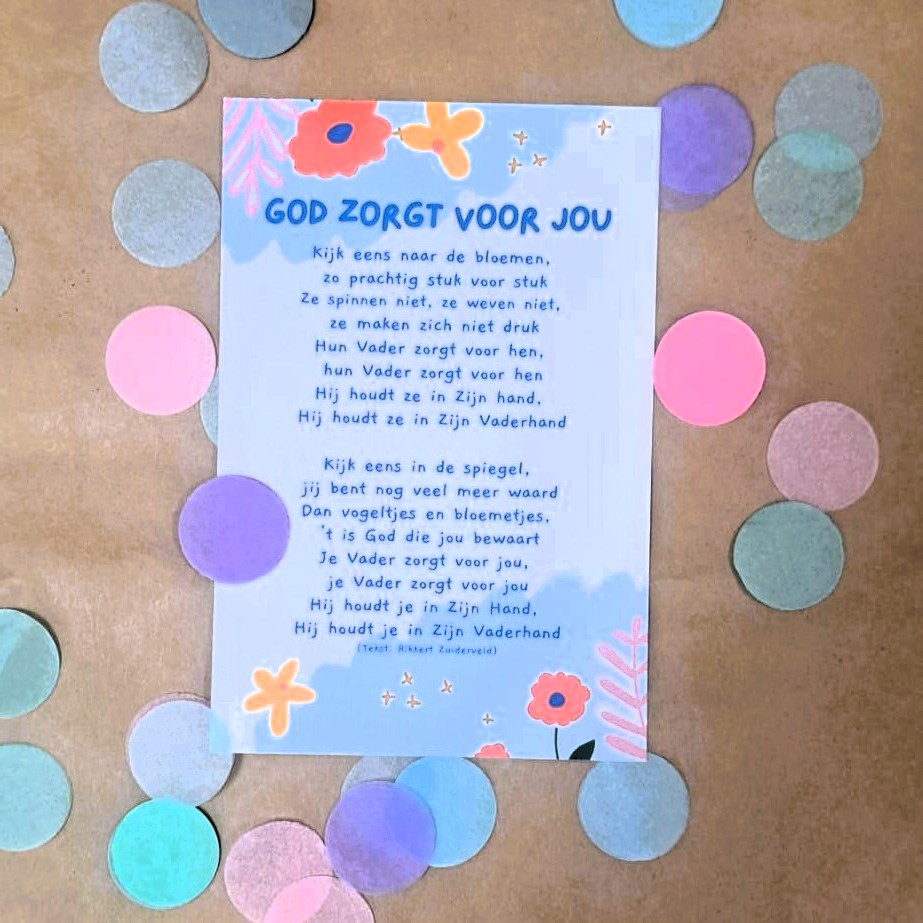 GOD ZORGT VOOR JOU
Kijk eens naar de bloemen,
zo prachtig stuk voor stuk
Ze spinnen niet, ze weven niet,
ze maken zich niet druk
Hun Vader zorgt voor hen,
hun Vader zorgt voor hen
Hij houdt ze in Zijn hand,
Hij houdt ze in Zijn Vaderhand
Kijk eens in de spiegel,
jij bent nog veel meer waard
Dan vogeltjes en bloemetjes,
't is God die jou bewaart
Je Vader zorgt voor jou,
je Vader zorgt voor jou
Hij houdt je in Zijn Hand,
Hij houdt je in Zijn Vaderhand
(Tekst: Rikkert Zuiderveld)